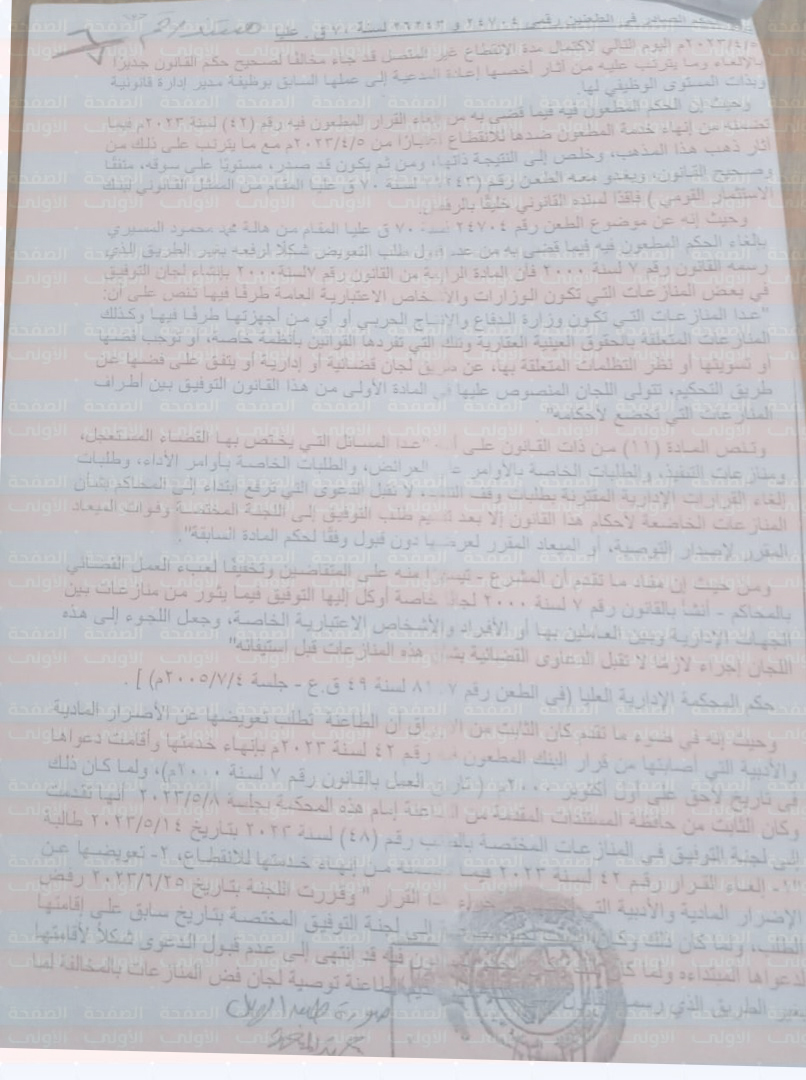 الحكم الصادر في الطعنين رقمي ٢٤٧٠٤ و ٢٦٢٤٣ لسنة ٧٠ ق. عليا
٢٠٢٣/٤/٥م اليوم التالي لإكتمال مدة الانقطاع غير المتصل قد جاء مخالفًا لصحيح حكم القانون جديرًا
بالإلغاء وما يترتب عليه من آثار أخصها إعادة المدعية إلى عملها السابق بوظيفة مدير إدارة قانونية
وبذات المستوى الوظيفي لها.
وحيث إن الحكم المطعون فيه فيما قضى به من إلغاء القرار المطعون فيه رقم (٤٢) لسنة ٢٠٢٣م فيما
تضمنه من إنهاء خدمة المطعون ضدها للانقطاع اعتبارًا من ٢٠٢٣/٤/٥م مع ما يترتب على ذلك من
آثار ذهب هذا المذهب، وخلص إلى النتيجة ذاتها، ومن ثم يكون قد صدر، مستويًا على سوقه، متفقًا
وصحيح القانون، ويغدو معه الطعن رقم ( لسنة ٧٠ ق عليا المقام من الممثل القانوني لبنك
الاستثمار القومي ) فاقدًا لسنده القانوني خليقًا بالرفض.
وحيث إنه عن موضوع الطعن رقم ٢٤٧٠٤ لسنة ٧٠ ق عليا المقام من هالة محمد محمود المسيري
بالغاء الحكم المطعون فيه فيما قضى به من عدم قبول طلب التعويض شكلًا لرفعه بغير الطريق الذي
رسمه القانون رقم ٧ لسنة ٢٠٠٠ فأن المادة الرابعة من القانون رقم ٧ لسنة ٢٠٠٠ بإنشاء لجان التوفيق
في بعض المنازعات التي تكون الوزارات والأشخاص الاعتبارية العامة طرفًا فيها تنص على أن:
"عدا المنازعات التي تكون وزارة الدفاع والإنتاج الحربي أو أي من أجهزتها طرفًا فيها وكذلك
المنازعات المتعلقة بالحقوق العينية العقارية وتلك التي تفردها القوانين بأنظمة خاصة، أو توجب فضها
أو تسويتها أو نظر التظلمات المتعلقة بها، عن طريق لجان قضائية أو إدارية أو يتفق على فضها عن
طريق التحكيم، تتولى اللجان المنصوص عليها في المادة الأولى من هذا القانون التوفيق بين أطراف
المنازعات التي تخضع لأحكامه".
وتنص المادة (١١) من ذات القانون على أنه "عدا المسائل التي يختص بها القضاء المستعجل،
ومنازعات التنفيذ، والطلبات الخاصة بالأوامر على العرائض، والطلبات الخاصة بأوامر الأداء، وطلبات
إلغاء القرارات الإدارية المقترنة بطلبات وقف التنفيذ، لا تقبل الدعوى التي ترفع ابتداء إلى المحاكم بشأن
المنازعات الخاضعة لأحكام هذا القانون إلا بعد تقديم طلب التوفيق إلى اللجنة المختصة وفوات الميعاد
المقرر لإصدار التوصية، أو الميعاد المقرر لعرضها دون قبول وفقًا لحكم المادة السابقة".
ومن حيث إن مفاد ما تقدم أن المشرع - تيسيرًا منه على المتقاضين وتخفيفًا لعبء العمل القضائي
بالمحاكم - أنشأ بالقانون رقم ٧ لسنة ٢٠٠٠ لجان خاصة أوكل إليها التوفيق فيما يثور من منازعات بين
الجهات الإدارية وبين العاملين بها أو الأفراد والأشخاص الاعتبارية الخاصة، وجعل اللجوء إلى هذه
اللجان إجراء لازمًا لا تقبل الدعاوى القضائية بشأن هذه المنازعات قبل استيفائه"
حكم المحكمة الإدارية العليا (في الطعن رقم لسنة ٤٩ ق.ع - جلسة ٢٠٠٥/٧/٤م) ] .
وحيث إنه في ضوء ما تقدم كان الثابت من الأوراق أن الطاعنة تطلب تعويضها عن الأضرار المادية
والأدبية التي أصابتها من قرار البنك المطعون فيه رقم ٤٢ لسنة ٢٠٢٣م بإنهاء خدمتها وأقامت دعواها
في تاريخ لاحق على أول أكتوبر ٢٠٠٠م ( تاريخ العمل بالقانون رقم ٧ لسنة ٢٠٠٠م)، ولما كان ذلك
وكان الثابت من حافظة المستندات المقدمة من الطاعنة إمام هذه المحكمة بجلسة ٢٠٢٣/٥/٨ أنها تقدمت
إلى لجنة التوفيق في المنازعات المختصة بالطلب رقم (٤٨) لسنة ٢٠٢٣ بتاريخ ٢٠٢٣/٥/١٤ طالبة
"١- إلغاء القرار رقم ٤٢ لسنة ٢٠٢٣ فيما تضمنه من إنهاء خدمتها للانقطاع، ٢- تعويضها عن
الإضرار المادية والأدبية التي جراء هذا القرار " وقررت اللجنة بتاريخ ٢٠٢٣/٦/٢٥ رفض
الطلب، ولما كان ذلك إلى لجنة التوفيق المختصة بتاريخ سابق على إقامتها
لدعواها المبتدأه ولما كان فيه قد انتهى إلى عدم قبول الدعوى شكلًا لأقامتها
بغير الطريق الذي رسمه الطاعنة توصية لجان فض المنازعات بالمخالفة لما